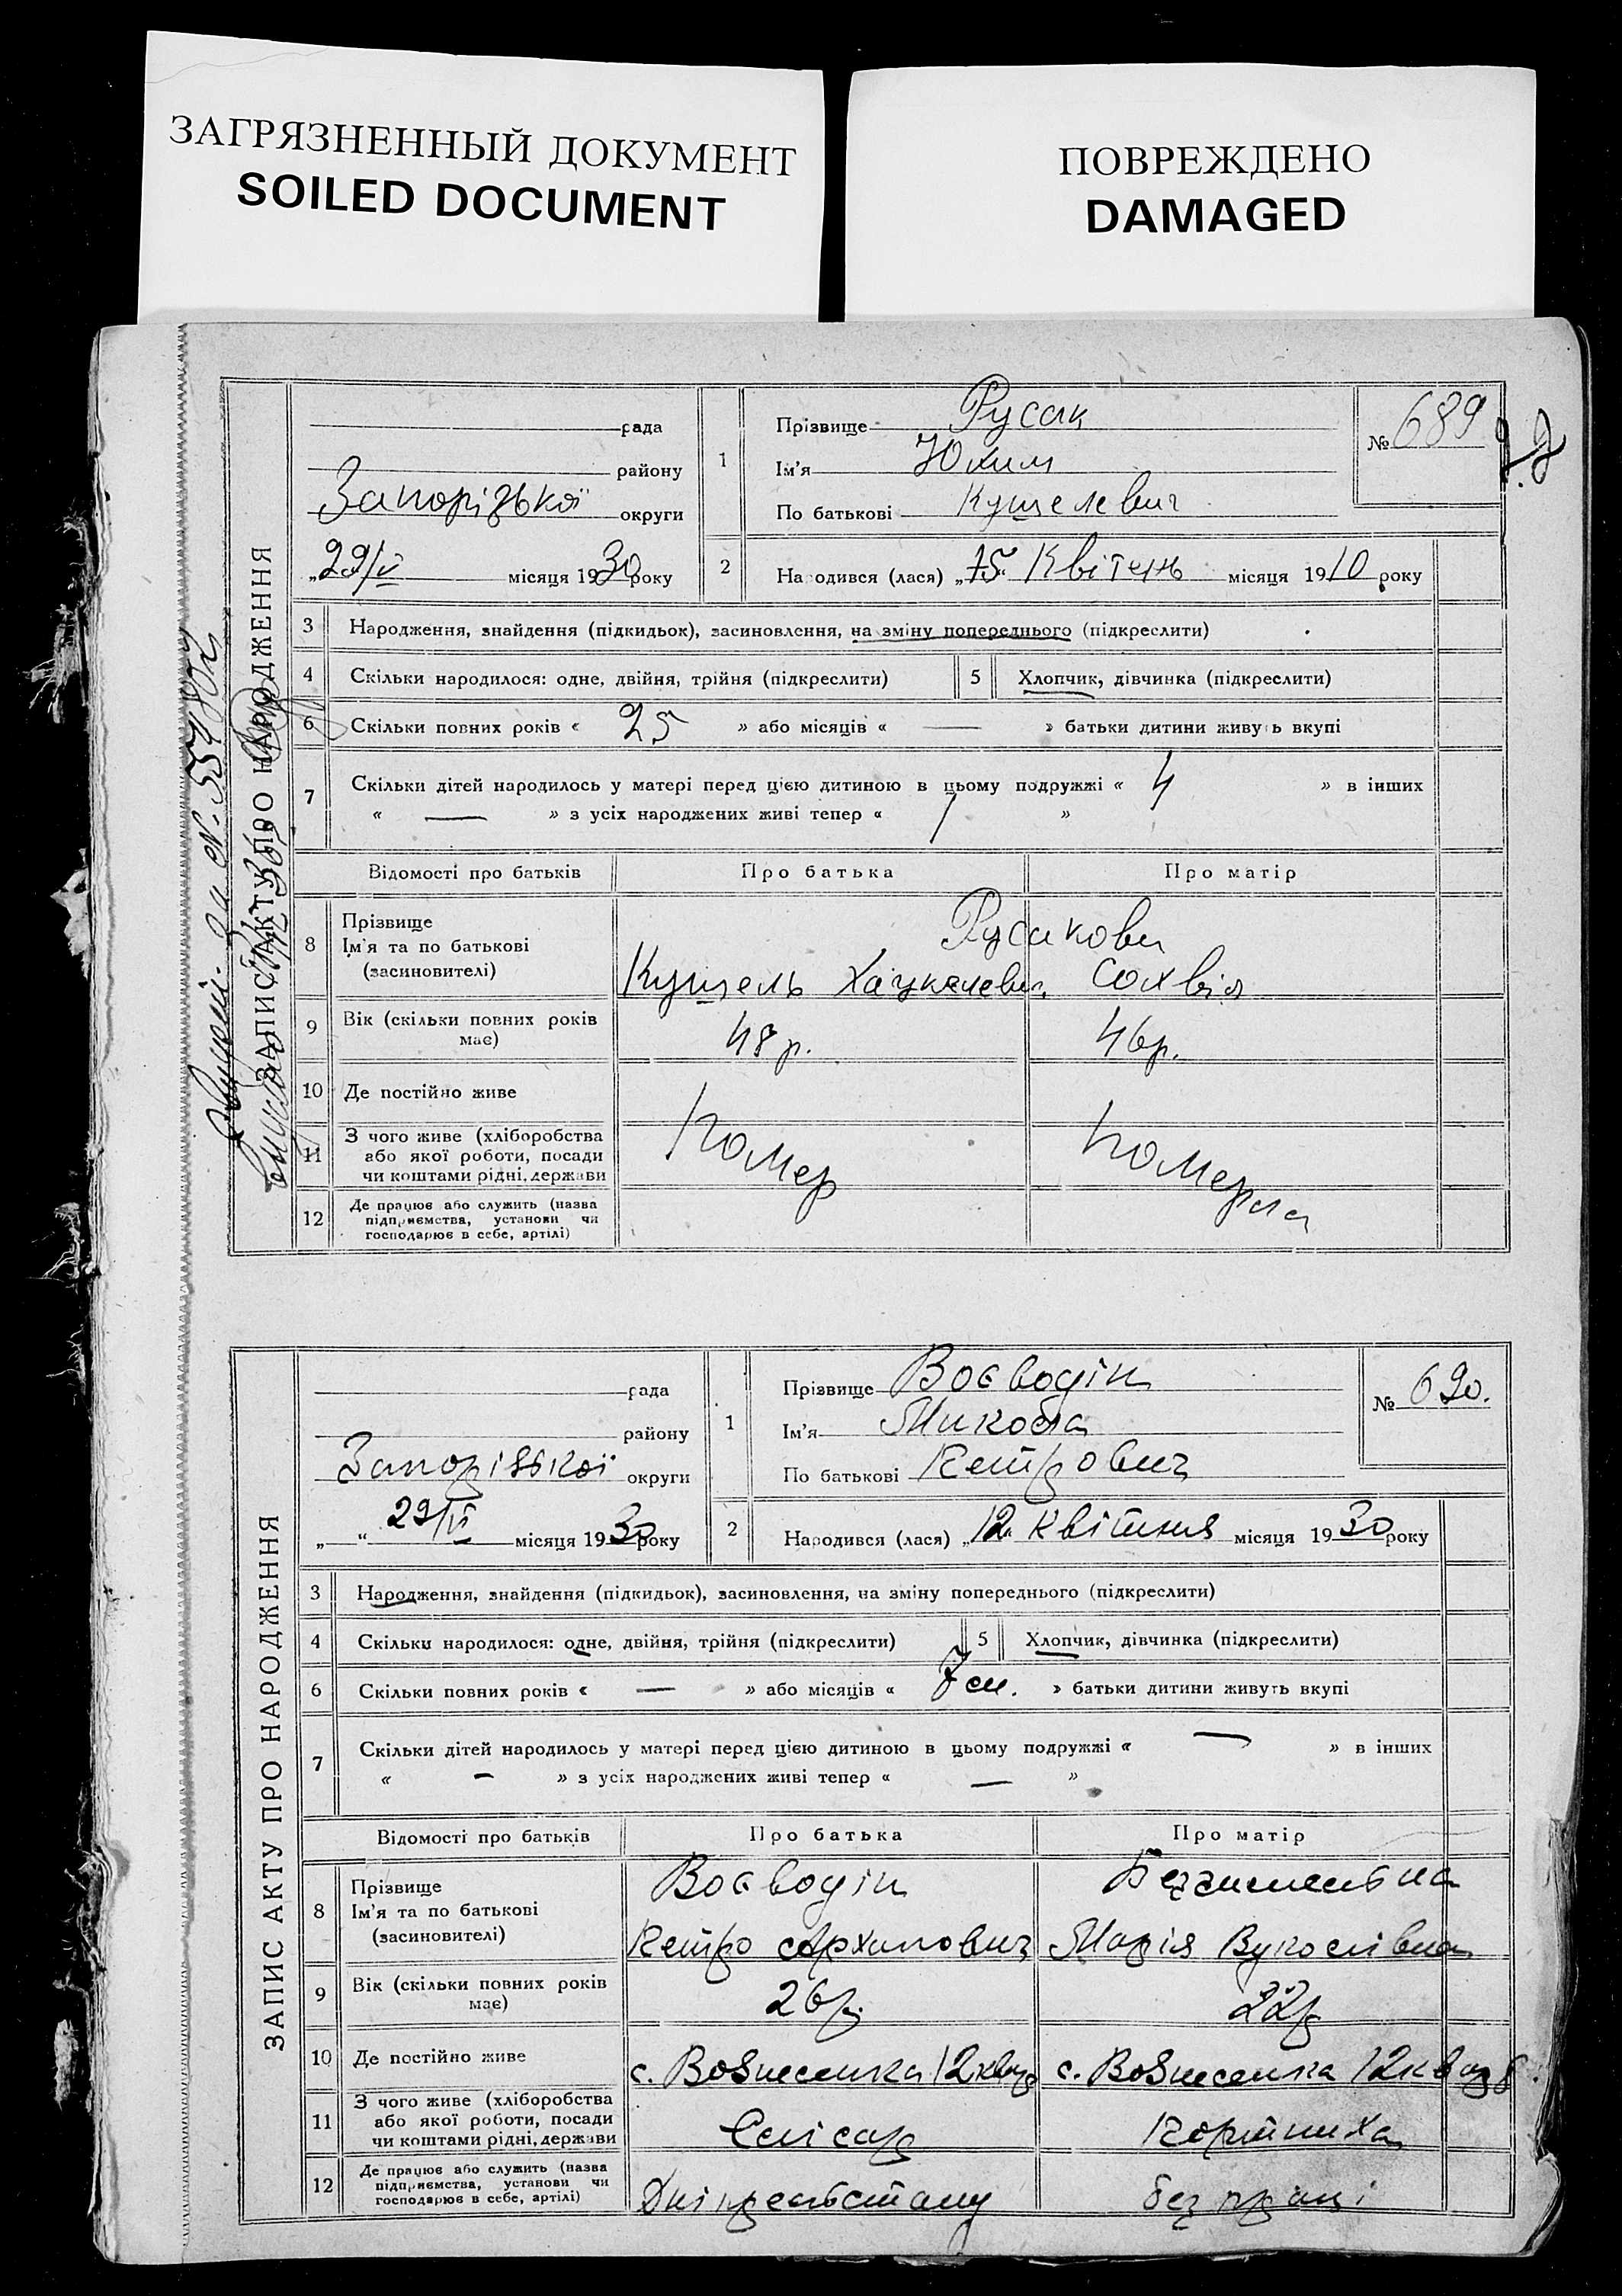 ЗАГРЯЗНЕННЫЙ ДОКУМЕНТ
SOILED DOCUMENT
ПОВРЕЖДЕНО
DAMAGED
ЗАПИС АКТУ ПРО НАРОДЖЕННЯ
рада
району
Запорізької округи
„29/V місяця 1930 року
1
Прізвище Русак
Ім'я Юхим
По батькові Кушелевич
№ 689
2 Народився (лася) „15“ Квітень місяця 1910 року
3 Народження, знайдення (підкидьок), засиновлення, на зміну попереднього (підкреслити)
4 Скільки народилося: одне, двійня, трійня (підкреслити) 5 Хлопчик, дівчинка (підкреслити)
6 Скільки повних років « 25 » або місяців « — » батьки дитини живуть вкупі
7 Скільки дітей народилось у матері перед цією дитиною в цьому подружжі « 4 » в інших
« — » з усіх народжених живі тепер « 1 »
Відомості про батьків Про батька Про матір
8 Прізвище
Ім'я та по батькові
(засиновителі)
Русакови
Кушель Хацкелевич Сохвія
9 Вік (скільки повних років має) 48 р. 46 р.
10 Де постійно живе
11 З чого живе (хліборобства
або якої роботи, посади
чи коштами рідні, держави
Помер Померла
12 Де працює або служить (назва
підприємства, установи чи
господарює в себе, артілі)
ЗАПИС АКТУ ПРО НАРОДЖЕННЯ
рада
району
Запорізької округи
„—“ 29/V місяця 1930 року
1
Прізвище Воєводін
Ім'я Микола
По батькові Петрович
№ 690.
2 Народився (лася) „12“ квітня місяця 1930 року
3 Народження, знайдення (підкидьок), засиновлення, на зміну попереднього (підкреслити)
4 Скільки народилося: одне, двійня, трійня (підкреслити) 5 Хлопчик, дівчинка (підкреслити)
6 Скільки повних років « — » або місяців « 7 м. » батьки дитини живуть вкупі
7 Скільки дітей народилось у матері перед цією дитиною в цьому подружжі « — » в інших
« — » з усіх народжених живі тепер « — »
Відомості про батьків Про батька Про матір
8 Прізвище
Ім'я та по батькові
(засиновителі)
Воєводін
Петро Архипович Марія
9 Вік (скільки повних років має) 26 р. 22 р
10 Де постійно живе с. Вознесенка 12 с. Вознесенка 12
11 З чого живе (хліборобства
або якої роботи, посади
чи коштами рідні, держави
Слісар
12 Де працює або служить (назва
підприємства, установи чи
господарює в себе, артілі)
Дніпрельстану без праці